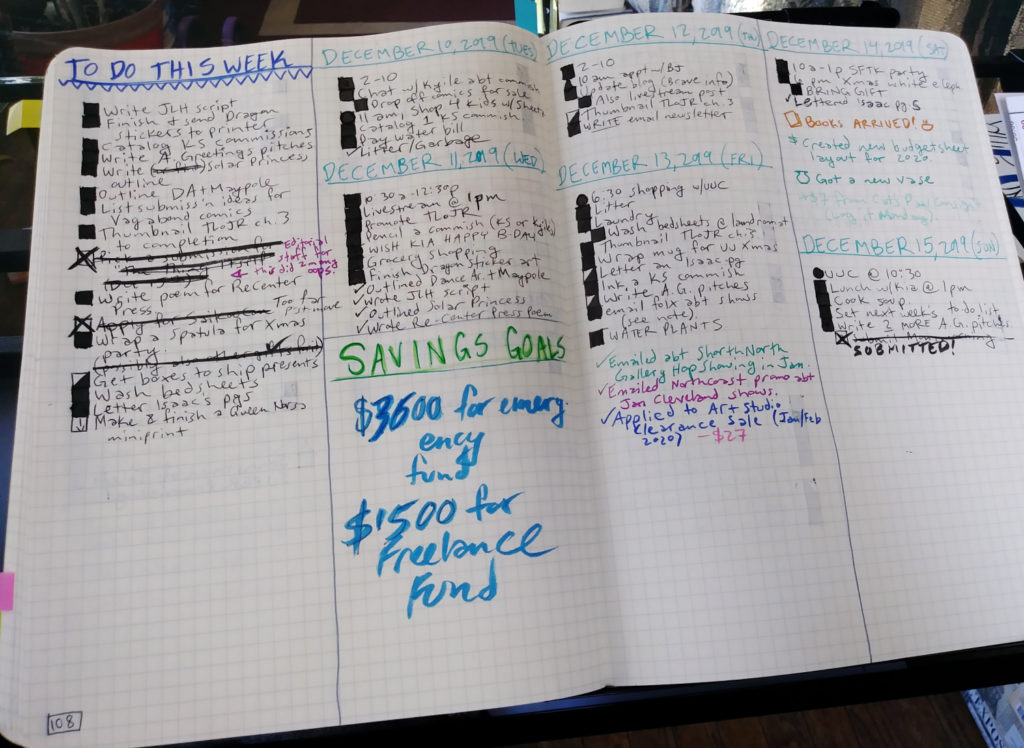 TO DO THIS WEEK
Write JLH script
Finish & send Dragon
stickers to printer
Catalog KS commissions
Write A. Greetings pitches
Write Solar Princess
outline
Outline DA + Maypole
List submiss'n ideas for
Vagabond comics
Thumbnail TLoJR ch. 3
to completion
Editorial
staff for
this did 2 mong
oops!
Write poem for Recenter
Press
Too far
past move
Apply for
Wrap a spatula for Xmas
party
Get boxes to ship presents
Wash bedsheets
Letter Isaac's pgs
Make & finish a Queen
miniprint
108
DECEMBER 10, 2019 (TUES)
2-10
Chat w/ Kyile abt commish
Drop off comics for sale
11 am, Shop 4 Kids w/Sheets
Catalog 1 KS commish
Pay water bill
Litter/Garbage
DECEMBER 11, 2019 (WED)
10:30a-12:30p
Livestream @ 1pm
Promote TLoJR
Pencil a commish (KS or Kyile)
WISH KIA HAPPY B-DAY
Grocery shopping
Finish Dragon sticker art
✓ Outlined Dance Ar. + Maypole
✓ Wrote JLH script
✓ Outlined Solar Princess
✓ Wrote Re-Center Press Poem
SAVINGS GOALS
$3600 for emerg
ency
fund
$1500 for
Freelance
Fund
DECEMBER 12, 2019 (TH)
2-10
10am appt w/BJ
Update blog (Brave info)
Also livestream post
Thumbnail TLoJR ch. 3
WRITE email newsletter
DECEMBER 13, 2019 (FRI)
6:30 shopping w/UUC
Litter
Laundry
Wash bedsheets @ laundromat
Thumbnail TLoJR ch. 3
Wrap mug for UU Xmas
Letter an Isaac pg
Ink, a KS commish
Write A.G. pitches
email folx abt shows
(see note)
WATER PLANTS
✓ Emailed abt Short North
Gallery Hop Showing in Jan.
✓ Emailed Northcoast promo abt
Jan Cleveland shows.
✓ Applied to Art Studio
Clearance Sale (Jan/Feb
2020) -$27
DECEMBER 14, 2019 (SAT)
10a-1p SFTK party
6pm Xmas white eleph
BRING GIFT
✓ Letterd Isaac pg. 5
BOOKS ARRIVED!
$ Created new budget sheet
layout for 2020
Got a new vase
+$7 from
(Log it Monday)
DECEMBER 15, 2019 (SUN)
UUC @ 10:30
Lunch w/Kia @ 1pm
Cook soup
Set next week's to do list
Write 3 MORE A.G. pitches
SUBMITTED!